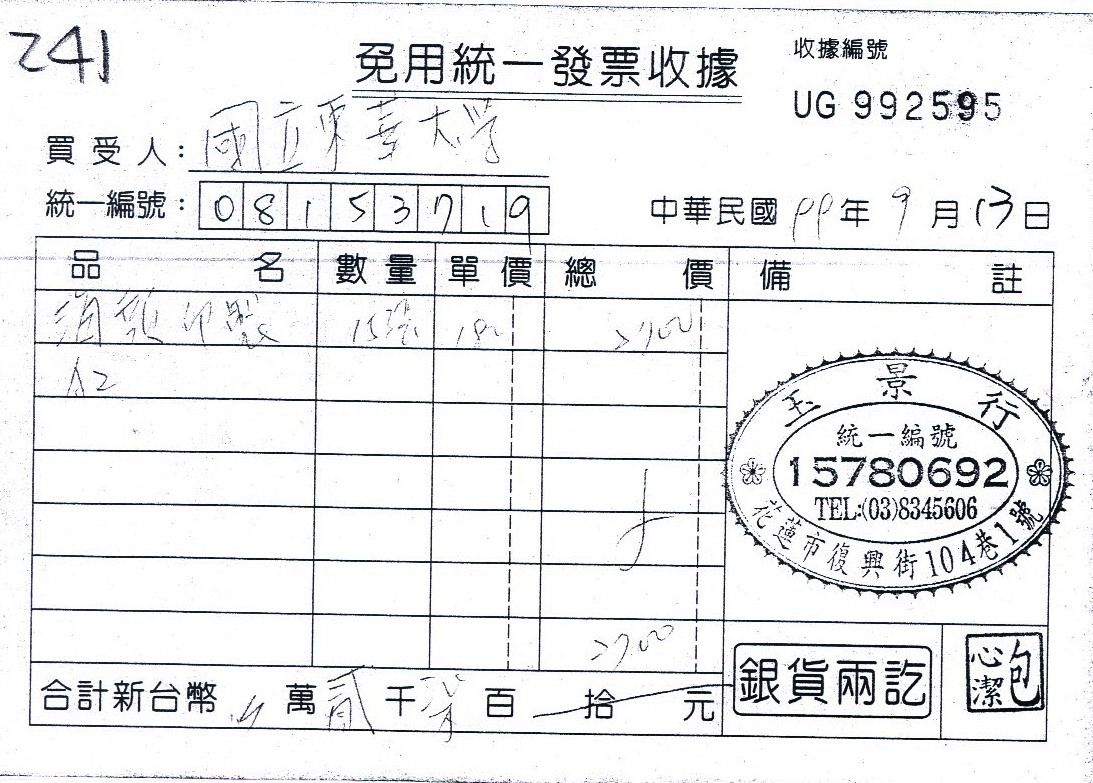 241
免用統一發票收據
收據編號
UG 992595
買受人：國立東華大学
統一編號：08153719
中華民國99年9月13日
品名 數量 單價 總價 備註
海報印製 15張 180 2700
A2
玉景行
統一編號
15780692
TEL:(03)8345606
花蓮市復興街104巷1號
2700
合計新台幣 萬貳千柒百拾元
銀貨兩訖
包心潔